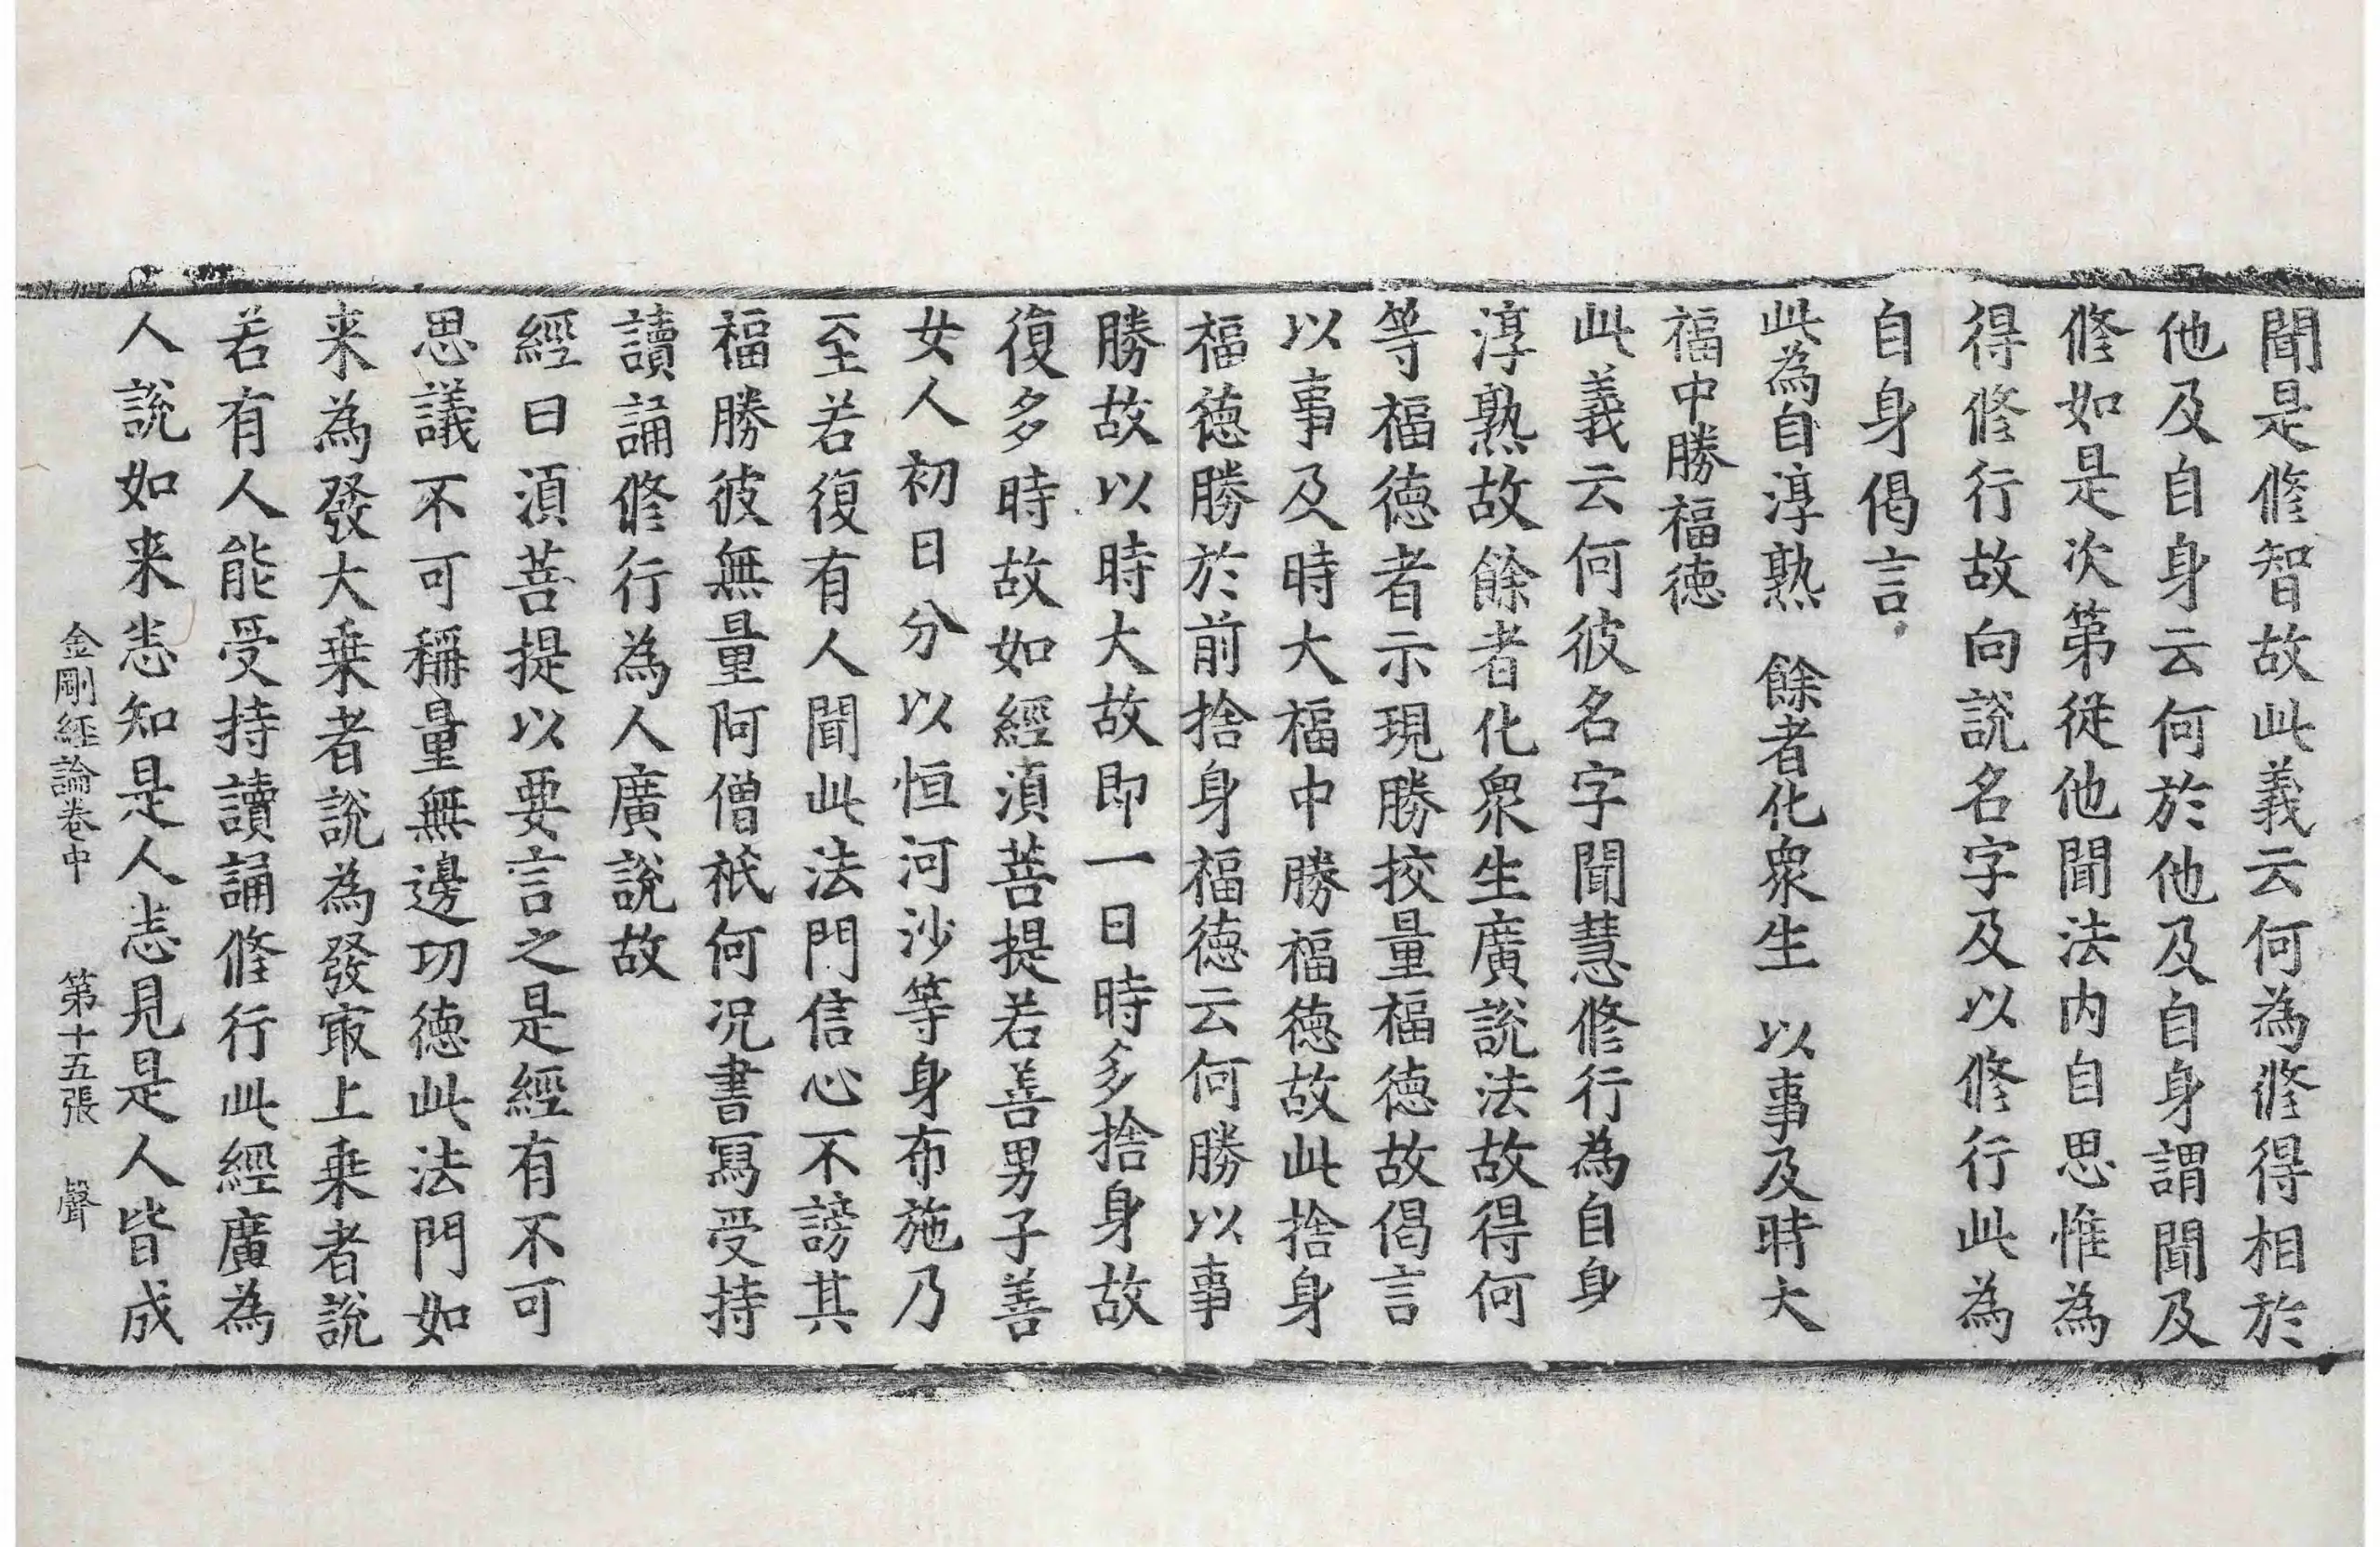 聞是修智故此義云何為修得相於
他及自身云何於他及自身謂聞及
修如是次第從他聞法内自思惟為
得修行故向說名字及以修行此為
自身偈言
此為自淳熟　餘者化衆生　以事及時大
福中勝福德
此義云何彼名字聞慧修行為自身
淳熟故餘者化衆生廣說法故得何
等福德者示現勝挍量福德故偈言
以事及時大福中勝福德故此捨身
福德勝於前捨身福德云何勝以事
勝故以時大故即一日時多捨身故
復多時故如經湏菩提若善男子善
女人初日分以恒河沙等身布施乃
至若復有人聞此法門信心不謗其
福勝彼無量阿僧祇何况書寫受持
讀誦修行為人廣說故
經曰湏菩提以要言之是經有不可
思議不可稱量無邊功德此法門如
来為發大乗者說為發冣上乗者說
若有人能受持讀誦修行此經廣為
人說如来悉知是人悉見是人皆成
金剛經論卷中　第十五張　聲